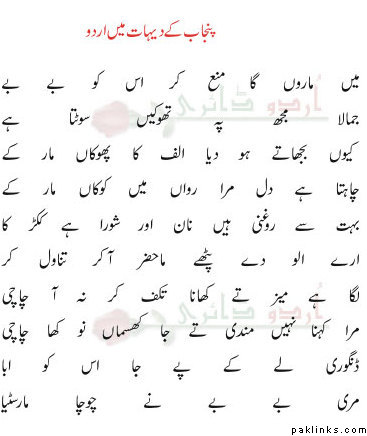 پنجاب کے دیہات میں اردو
میں ماروں گا منع کر اس کو بے بے
جمالا مجھ پہ تھوکیں سوٹتا ہے
کیوں بجھاتے ہو دیا الف کا پھوکاں مار کے
چاہتا ہے دل مرا رواں میں کوکاں مار کے
بہت سے روغنی ہیں نان اور شورا ہے ککڑ کا
ارے الو دے پٹھے ماحضر آ کر تناول کر
لگا ہے میز تے کھانا تکلف کر نہ آ چاچی
مرا کہنا نہیں مندی تے جا کھسماں نو کھا چاچی
ڈنگوری لے کے پے جا اس کو ابا
مری بے بے نے چوچا مارسٹیا
اُردو ڈائری
اُردو ڈائری
paklinks.com